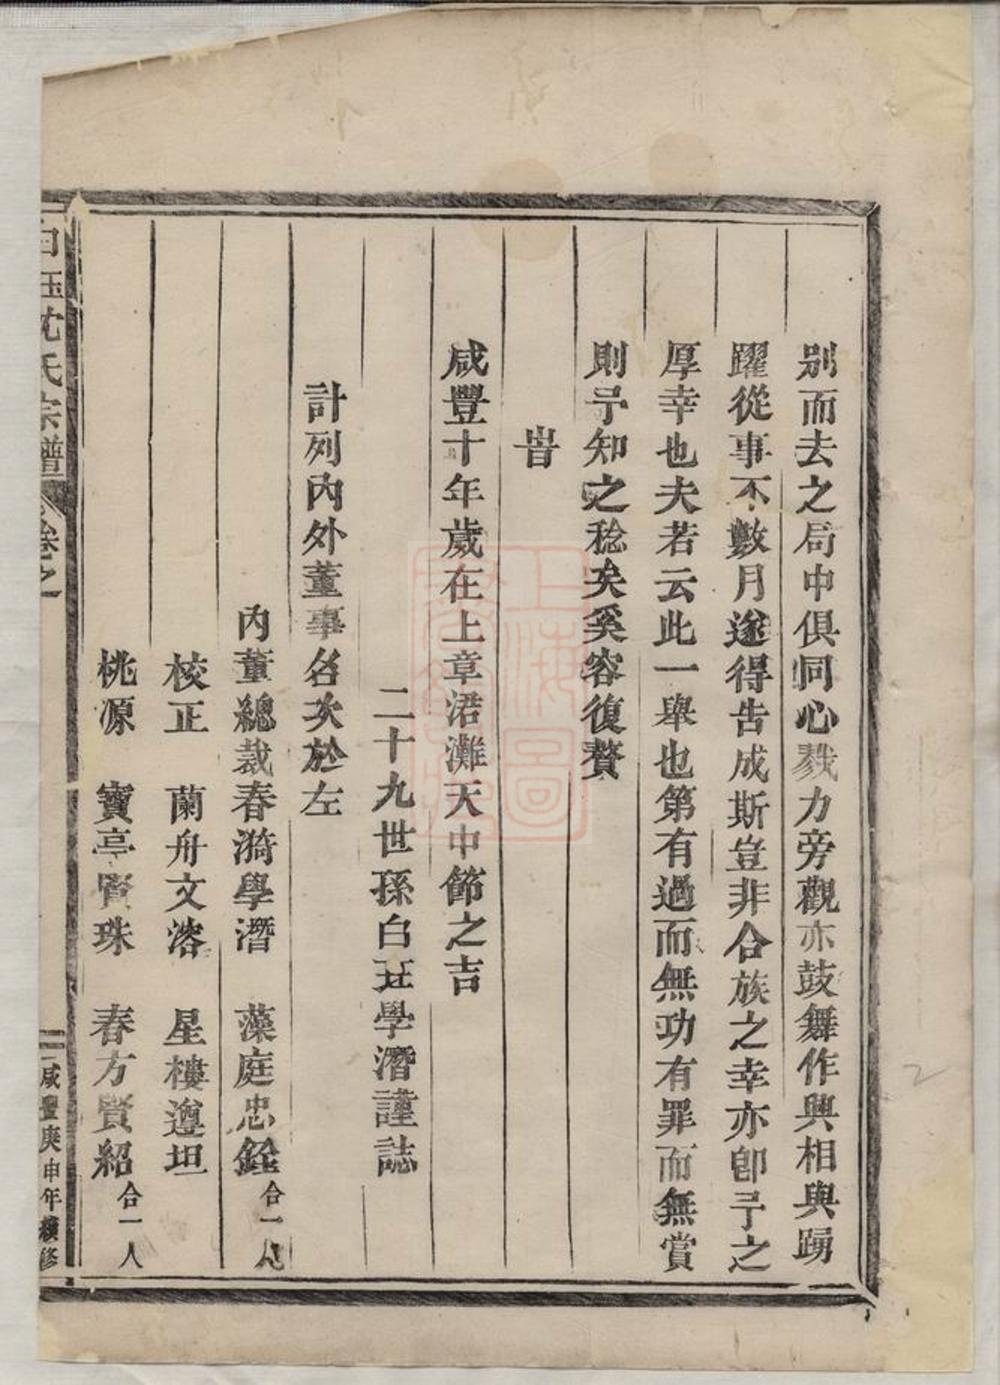 別而去之局中俱同心戮力旁觀亦鼓舞作興相與踴
躍從事不數月遂得告成斯豈非合族之幸亦卽予之
厚幸也夫若云此一舉也第有過而無功有罪而無賞
則予知之稔矣奚容復贅
旹
咸豐十年歲在上章涒灘天中節之吉
二十九世孫白玨學潛謹誌
計列內外董事名次於左
內董總裁春漪學潛 藻庭忠銓 合一人
校正 蘭舟文溶 星樓遵坦
桃源 寶亭賢珠 春方賢紹 合一人
白玉沈氏宗譜 卷之
咸豐庚申年續修
上海圖